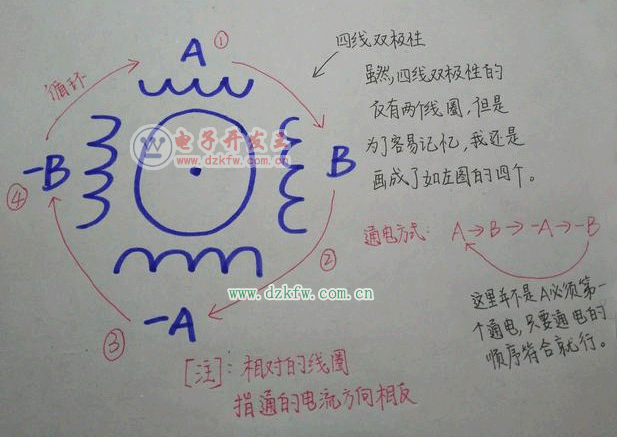 A ①
四线双极性
循环
虽然,四线双极性的
仅有两个线圈,但是
为了容易记忆,我还是
画成了如左图的四个。
电子开发王
www.dzkfw.com.cn
-B
B
④
通电方式: A→B→-A→-B
②
www.dzkfw.com.cn
-A
③
这里并不是A必须第一
个通电,只要通电的
顺序符合就行。
[注]: 相对的线圈
指通的电流方向相反